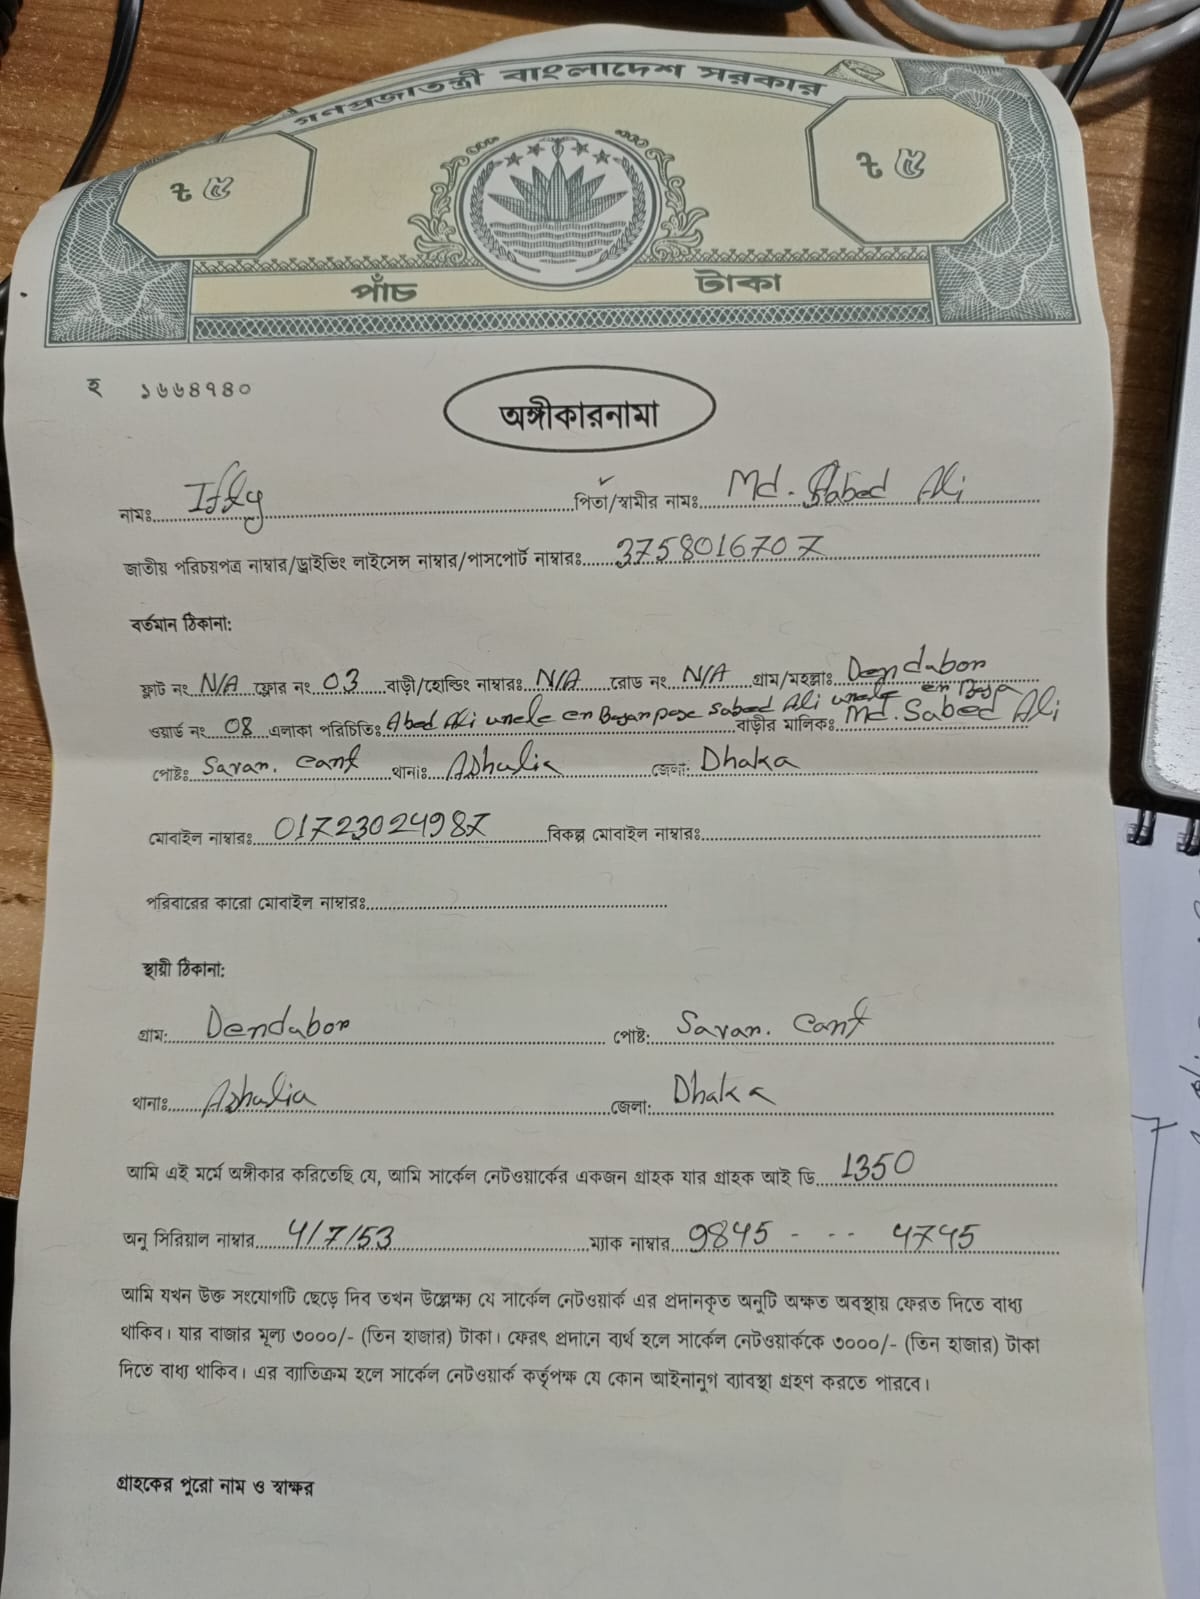 গণপ্রজাতন্ত্রী বাংলাদেশ সরকার
ট ৫ ট ৫
পাঁচ টাকা
হ ১৬৬৪৭৪০
অঙ্গীকারনামা
নামঃ Iffy পিতা/স্বামীর নামঃ Md. Sabed Ali
জাতীয় পরিচয়পত্র নাম্বার/ড্রাইভিং লাইসেন্স নাম্বার/পাসপোর্ট নাম্বারঃ 3758016707
বর্তমান ঠিকানা:
ফ্লাট নং N/A ফ্লোর নং 03 বাড়ী/হোল্ডিং নাম্বারঃ N/A রোড নং N/A গ্রাম/মহল্লাঃ Dendabor
ওয়ার্ড নং 08 এলাকা পরিচিতিঃ Abed Ali uncle en Sabed Ali uncle en বাড়ীর মালিকঃ Md. Sabed Ali
পোষ্টঃ Savar. Cant থানাঃ Ashulia জেলা: Dhaka
মোবাইল নাম্বারঃ 01723024987 বিকল্প মোবাইল নাম্বারঃ
পরিবারের কারো মোবাইল নাম্বারঃ
স্থায়ী ঠিকানা:
গ্রাম: Dendabor পোষ্ট: Savar. Cant
থানাঃ Ashulia জেলা: Dhaka
আমি এই মর্মে অঙ্গীকার করিতেছি যে, আমি সার্কেল নেটওয়ার্কের একজন গ্রাহক যার গ্রাহক আই ডি 1350
অনু সিরিয়াল নাম্বার 4/7/53 ম্যাক নাম্বার 9845 - - - 4745
আমি যখন উক্ত সংযোগটি ছেড়ে দিব তখন উল্লেক্ষ্য যে সার্কেল নেটওয়ার্ক এর প্রদানকৃত অনুটি অক্ষত অবস্থায় ফেরত দিতে বাধ্য
থাকিব। যার বাজার মূল্য ৩০০০/- (তিন হাজার) টাকা। ফেরৎ প্রদানে ব্যর্থ হলে সার্কেল নেটওয়ার্ককে ৩০০০/- (তিন হাজার) টাকা
দিতে বাধ্য থাকিব। এর ব্যাতিক্রম হলে সার্কেল নেটওয়ার্ক কর্তৃপক্ষ যে কোন আইনানুগ ব্যাবস্থা গ্রহণ করতে পারবে।
গ্রাহকের পুরো নাম ও স্বাক্ষর